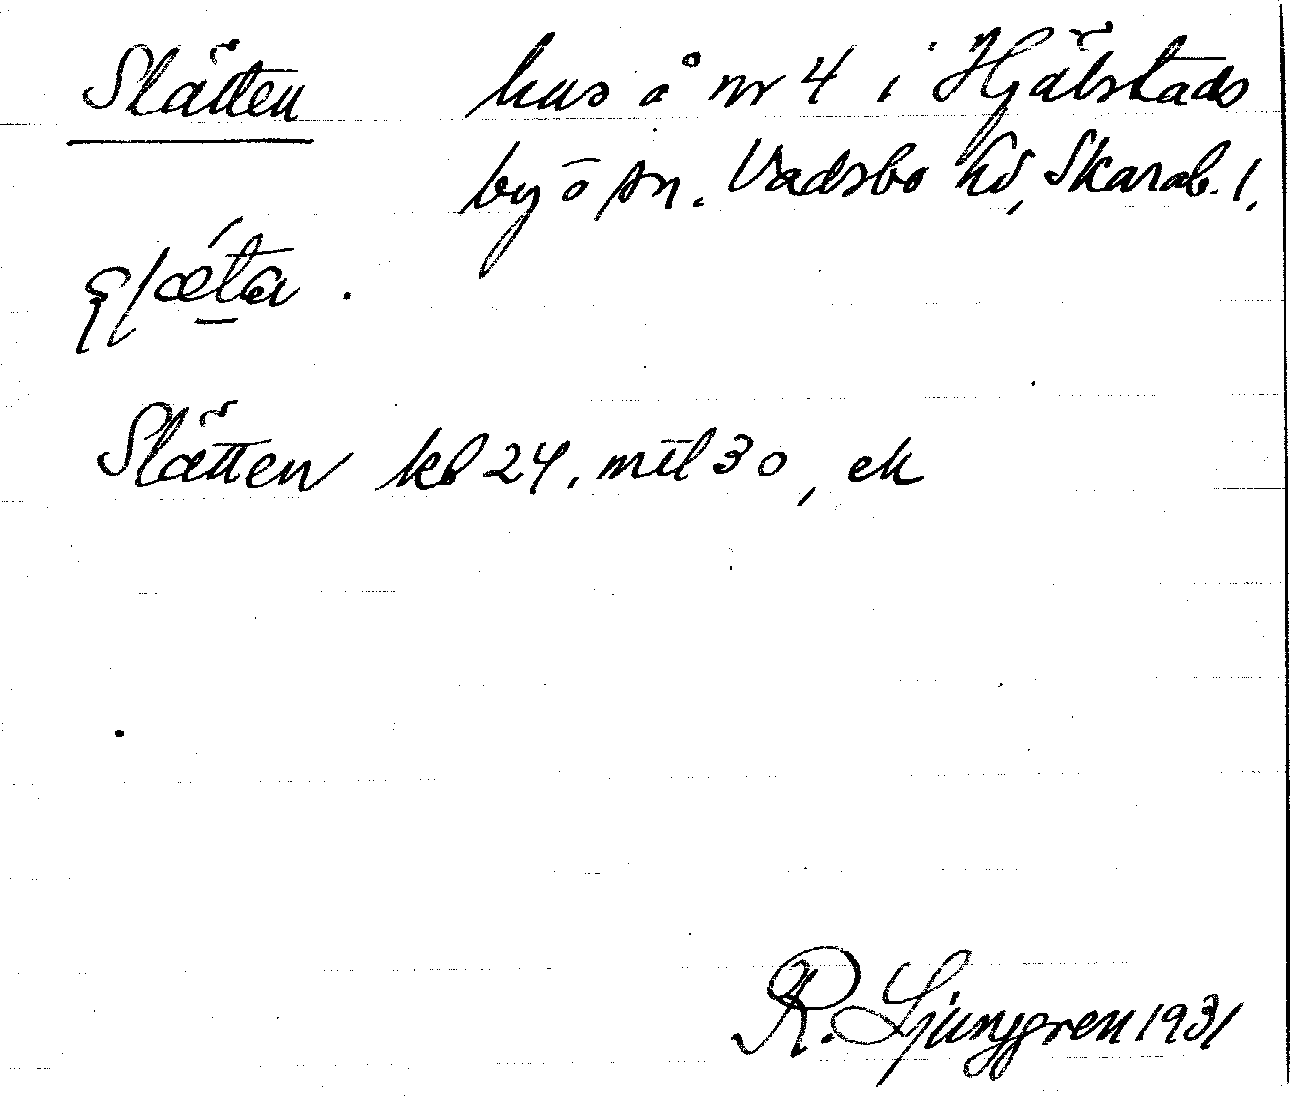 Slätten hus å nr 4 i Hjälstads
by o sn. Vadsbo hd, Skarab. l.
Slätten kb 24. mtl 30, ek
R. Ljunggren 1931